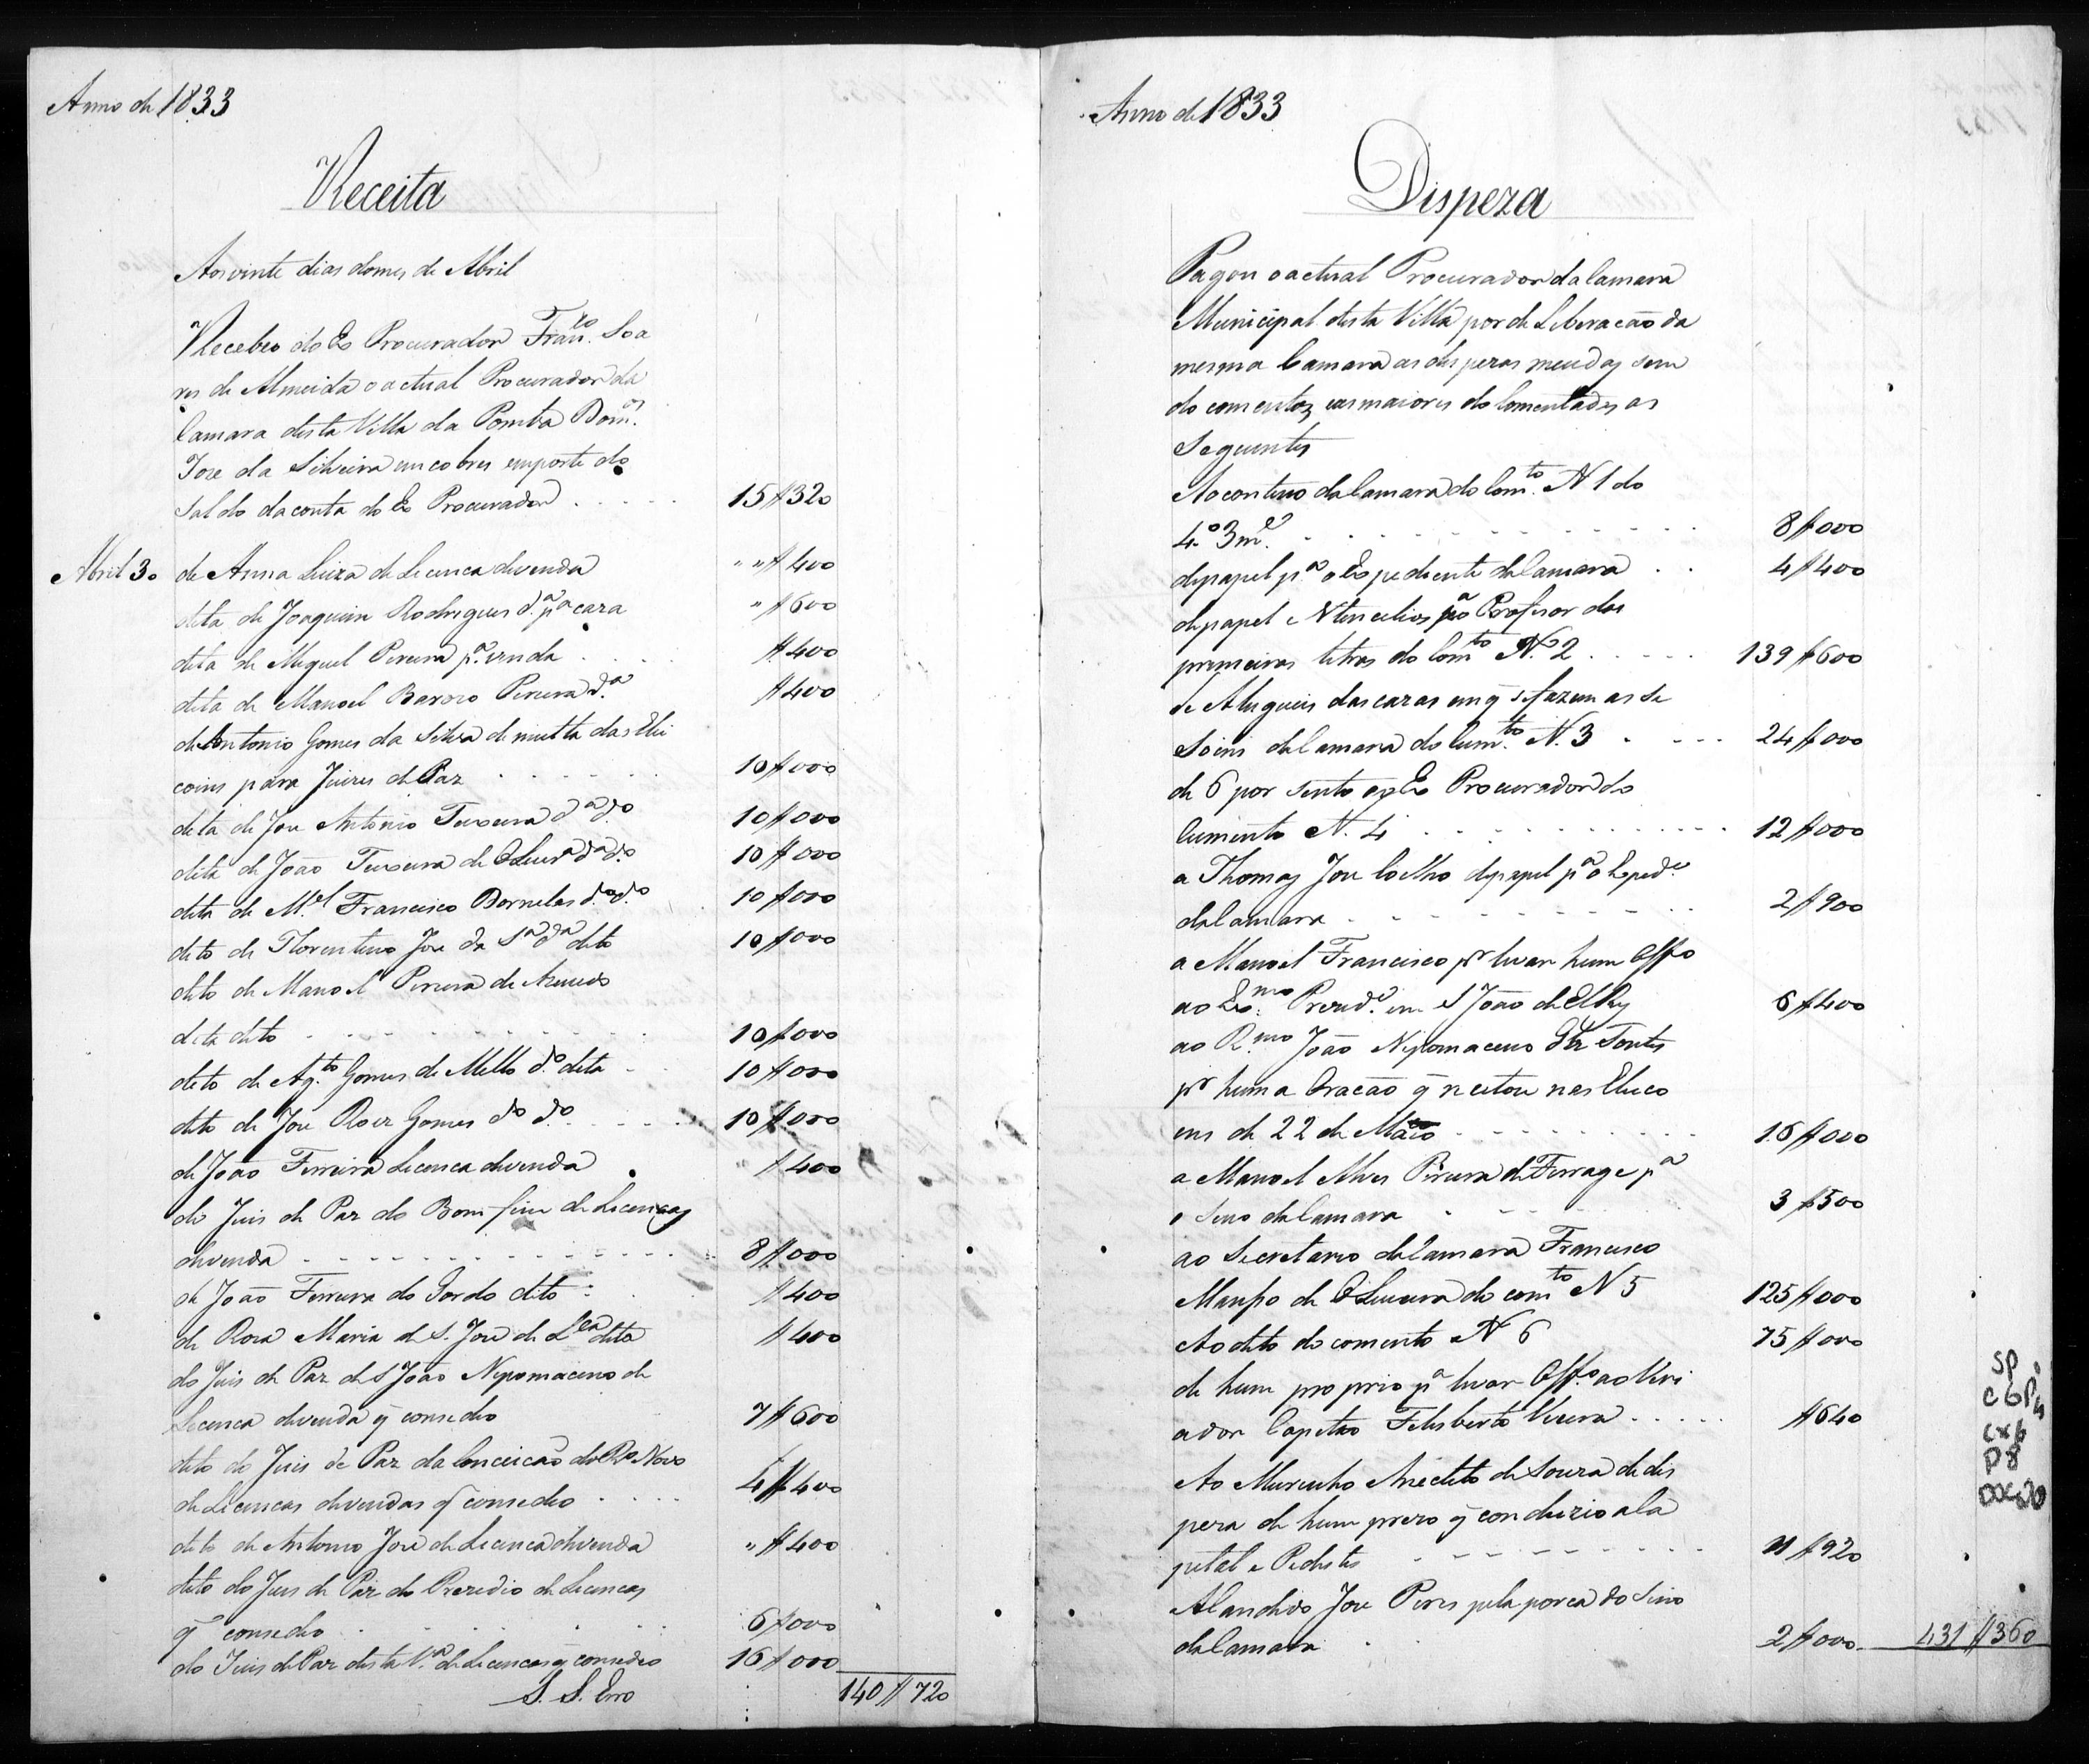 Anno de 1833
Receita
Aos vinte dias do mes de Abril
Recebeo do Ex Procurador Franco. Soa
res de Almeida o actual Procurador da
Camara desta Villa da Pomba Domos.
Joze da Silveira em cobres emporte do
Saldo da conta do Ex Procurador . . . . 15$320
Abril 30 de Anna Luiza de Licenca de venda " " $400
dita de Joaquim Rodrigues da. pa caza " $600
dita de Miguel Pereira pa. venda . . . $400
dita de Manoel Barozo Pereira da. $400
de Antonio Gomes da Silva de multa das Elei
coins para Juizes de Paz . . . . . 10$000
dita de Joze Antonio Teixeira da do. 10$000
dita de João Teixeira de Olivra da do. 10$000
dita de Mel. Francisco Dornelas da. do. 10$000
dito de Florentino Joze da Sa da dito 10$000
dito de Manoel Pereira de Azevedo
dita dito . . . . . . . . . 10$000
dito de Agto. Gomes de Mello do. dita . . 10$000
dito de Joze Gomes do do. . . . . . 10$000
de João Ferreira Licenca de venda " $400
do Juis de Paz do Bom fim de Licencas
de venda . . . . . . . . . . 8$000
de João Ferreira do Gordo dito : . $400
de Roza Maria de S. Joze de Lca dita $400
do Juis de Paz de S João Nepomaceno de
Licenca de venda q consedeo 7$600
dito do Juis de Paz da Conceicão do Ro Novo
de Licencas de vendas q consedeo . . . . 4$400
dito de Antonio Joze de Licenca de venda " $400
dito do Juis de Paz do Prezidio de Licencas
q consedeo . . . . . . . . 6$000
do Juis de Paz desta Va. de Licencas q consedeo 16$000
S. S. Erro 140$720
Anno de 1833
Dispeza
Pagou o actual Procurador da Camara
Municipal desta Villa por deLiberacão da
mesma Camara as despezas meudas sem
do comentos, e as maiores do Comentades as
Seguentes
Ao contino da Camara do Comto. N 1 do
4o 3me. . . . . . . . . . . . 8$000
de papel pa o Expediente da Camara . . 4$400
de papel e Utencelios pa o Profesor das
primeiras letras do Comto No. 2 . . . . . 139$600
de Alugueis das cazas em q se fazem as Se
soins da Camara do Cumto. N. 3 . . . . 24$000
de 6 por sento ao Ex Procurador do
Cumento N. 4 . . . . . . . . . . 12$000
a Thomas Joze Coelho de papel pa o Expede.
da Camara . . . . . . . . . 2$900
a Manoel Francisco pr levar hum Offo
ao Exmo. Prezide. em S João de El Rey 6$400
ao Rmo João Nepomaceno Fontes
pr huma Oracão q recitou nas Eleico
ens de 22 de Maio . . . . . . . 16$000
a Manoel Alves Pereira de Ferrage pa
o Sino da Camara . . . . . . 3$500
ao Secretario da Camara Francisco
de Oliveira do comto N 5 125$000
Ao dito do comento N 6 75$000
de hum proprio pa levar Offo. ao Veri
ador Capetão Felisberto Vieira . . . . . $640
Ao Meirinho Anecleto de Souza de dis
peza de hum prezo q conduzio a Ca
petal e Pedestes . . . . . . . . 11$920
A Candido Joze Peres pela porca do Sino
da Camara . . . 2$000 431$360
SP
CGP
CX
P8
DOC